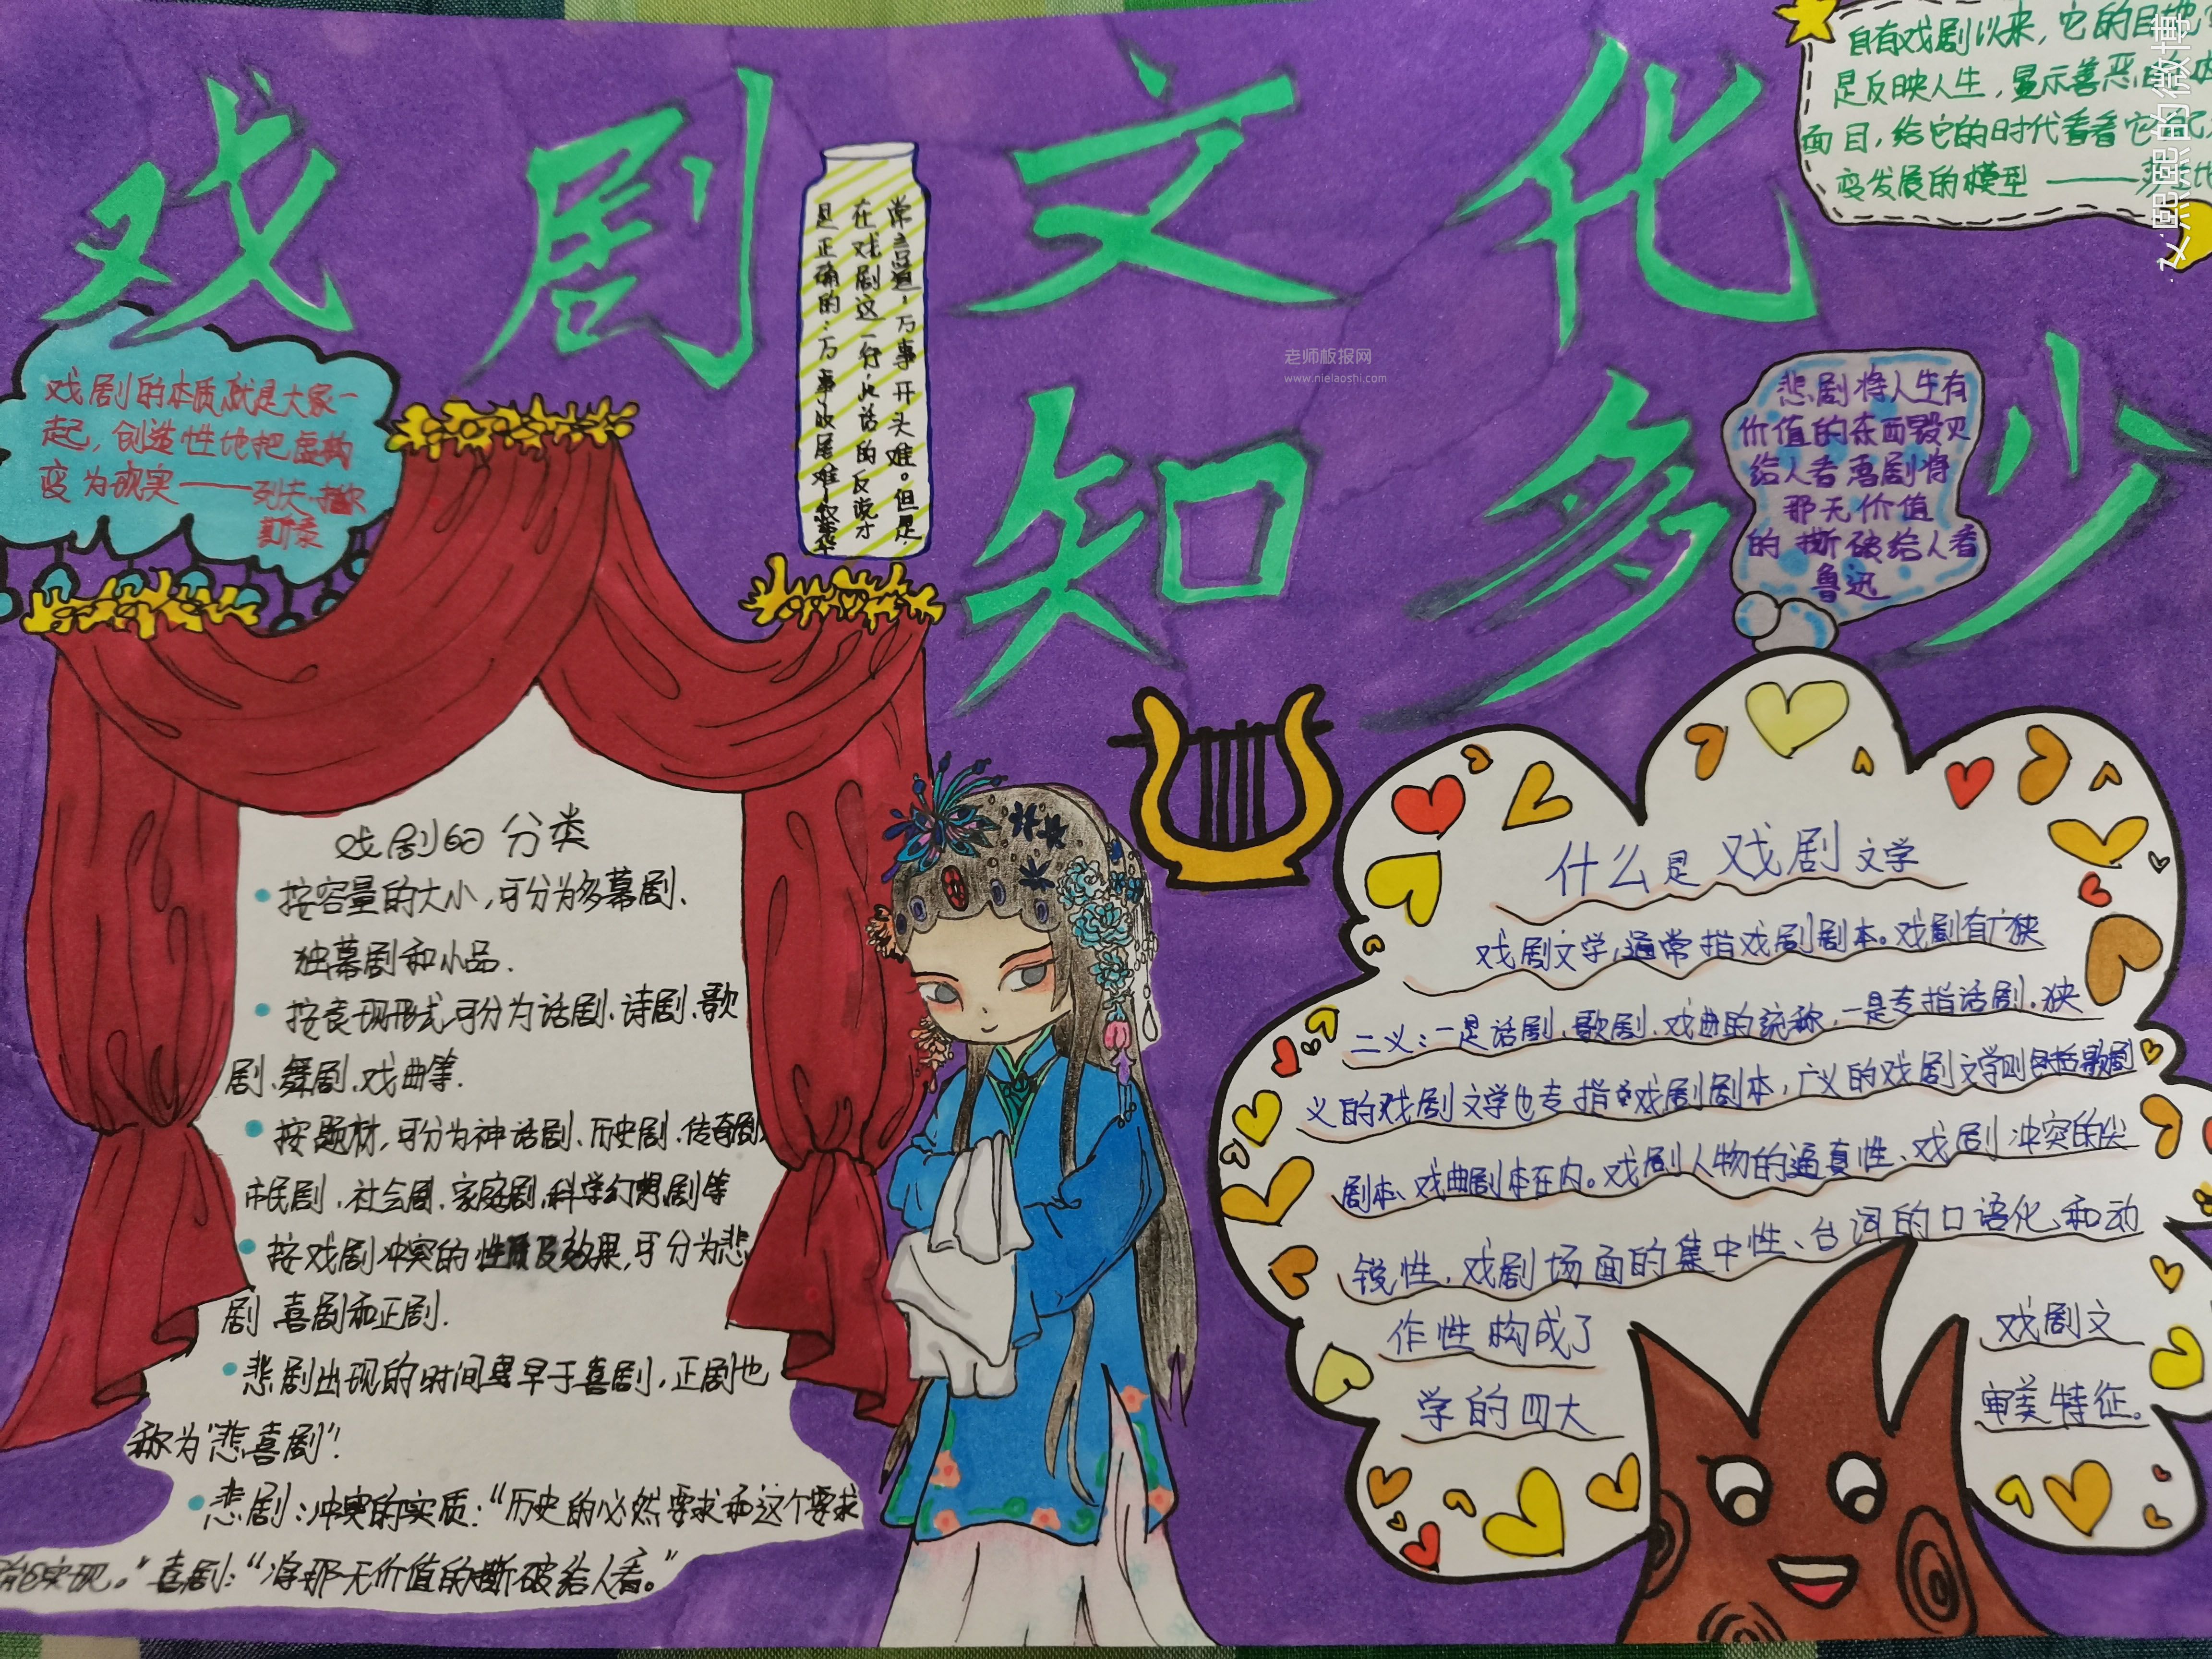 戏剧文化
知多少
自有戏剧以来，它的目地
是反映人生，显示善恶
面目，给它的时代看看它
变发展的模型 ——莎
文熙熙的微博
常言道，万事开头难。但是
在戏剧这一行，此话的反说才
是正确的：万事收尾难
老师板报网
www.nielaoshi.com
戏剧的本质就是大家一
起，创造性地把虚构
变为现实——列夫·
悲剧将人生有
价值的东西毁灭
给人看喜剧将
那无价值
的撕破给人看
鲁迅
戏剧的分类
按容量的大小，可分为多幕剧、
独幕剧和小品.
按表现形式可分为话剧、诗剧、歌
剧、舞剧、戏曲等.
按题材，可分为神话剧、历史剧、传奇剧、
市民剧、社会剧、家庭剧、科学幻想剧等
按戏剧冲突的性质及效果，可分为悲
剧 喜剧和正剧.
悲剧出现的时间要早于喜剧，正剧也
称为“悲喜剧”！
悲剧：冲突的实质：“历史的必然要求和这个要求
能实现。”喜剧：“将那无价值的撕破给人看。”
什么是戏剧文学
戏剧文学，通常指戏剧剧本。戏剧有广狭
二义：一是话剧、歌剧、戏曲的统称，一是专指话剧．狭
义的戏剧文学也专指戏剧剧本，广义的戏剧文学则包括歌剧
剧本、戏曲剧本在内。戏剧人物的逼真性、戏剧冲突的尖
锐性，戏剧场面的集中性、台词的口语化和动
作性构成了 戏剧文
学的四大 审美特征。